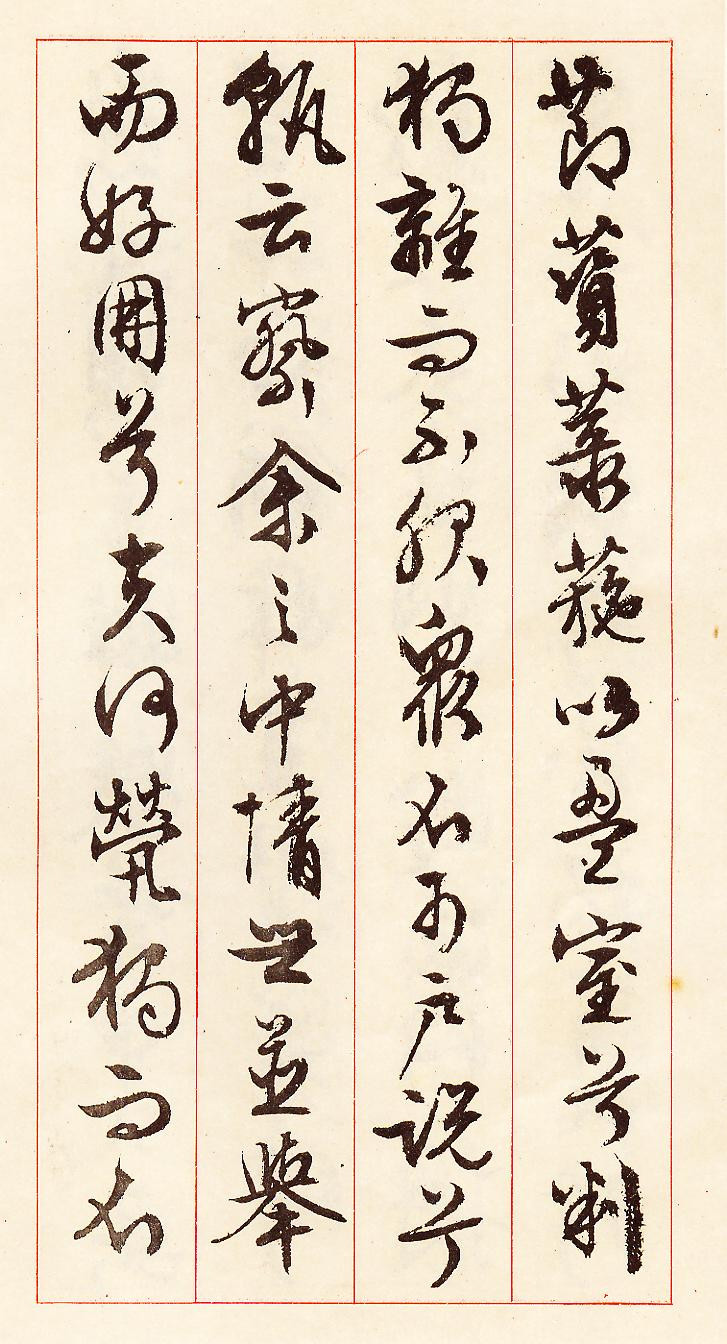 節薋菉葹以盈室兮判
獨離而不服眾不可戶説兮
孰云察余之中情世並舉
而好朋兮夫何煢獨而不